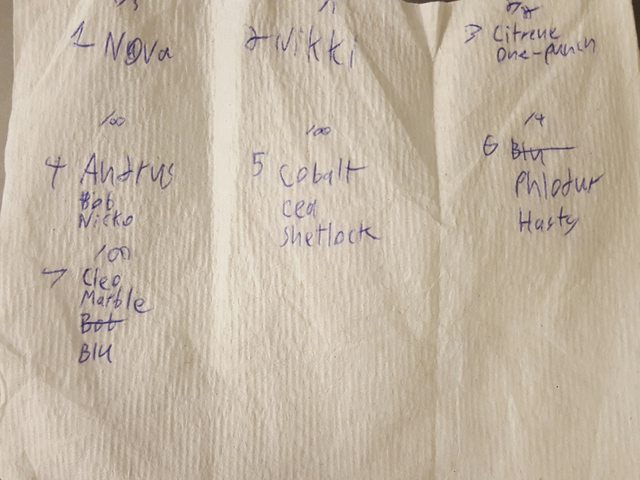 1 Nova
2 Nikki
3 Citrene
One-punch
100
4 Andrus
Bob
Nicko
100
5 Cobalt
Ced
Shetlock
14
6 Blu
Phlodur
Hasty
100
7 Cleo
Marble
Bob
Blu